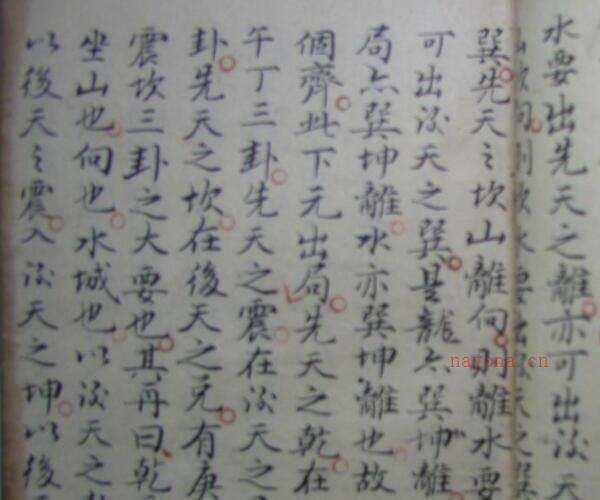 水要出先天之離亦可出後天
水要出天之巽
巽先天之坎山離向離水要
可出後天之巽是龍亦巽坤離
局亦巽坤離水亦巽坤離也故
個齊此下元出局先天之乾在
午丁三卦先天之震在後天之
卦先天之坎在後天之兌有庚
震坎三卦之大要也其再曰乾
坐山也向也水城也以後天之
以後天之震入後天之坤以後
nayona.cn